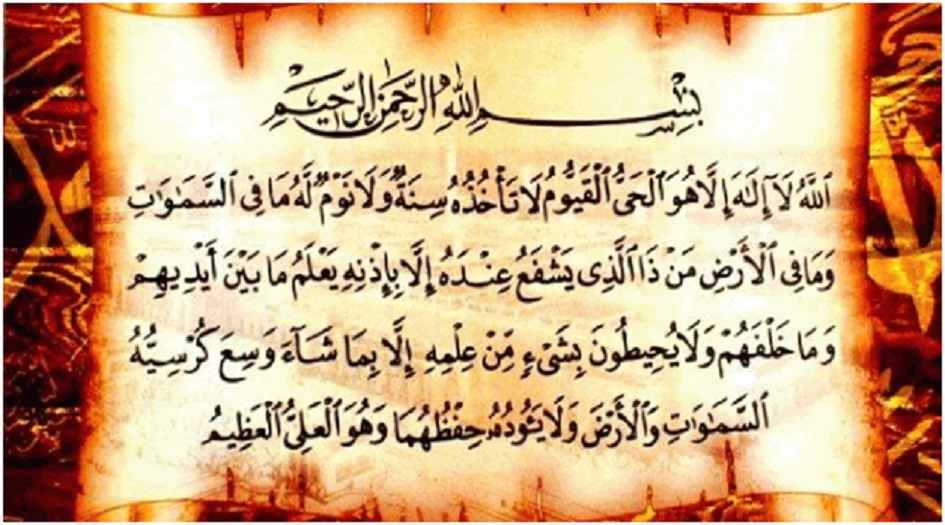 بِسْمِ اللهِ الرَّحْمَنِ الرَّحِيمِ
اَللَّهُ لَآ إِلَـٰهَ إِلَّا هُوَ اَلْحَىُّ الْقَيُّومُ لَا تَأْخُذُهُ سِنَةٌ وَلَا نَوْمٌ لَّهُ مَا فِى اَلسَّمَـٰوَٰتِ
وَمَا فِى اَلْأَرْضِ مَنْ ذَا اَلَّذِى يَشْفَعُ عِنْدَهُ إِلَّا بِإِذْنِهِ يَعْلَمُ مَا بَيْنَ أَيْدِيهِمْ
وَمَا خَلْفَهُمْ وَلَا يُحِيطُونَ بِشَىْءٍ مِّنْ عِلْمِهِ إِلَّا بِمَا شَآءَ وَسِعَ كُرْسِيُّهُ
اَلسَّمَـٰوَٰتِ وَاَلْأَرْضَ وَلَا يَـُٔودُهُۥ حِفْظُهُمَا وَهُوَ اَلْعَلِىُّ اَلْعَظِيمُ